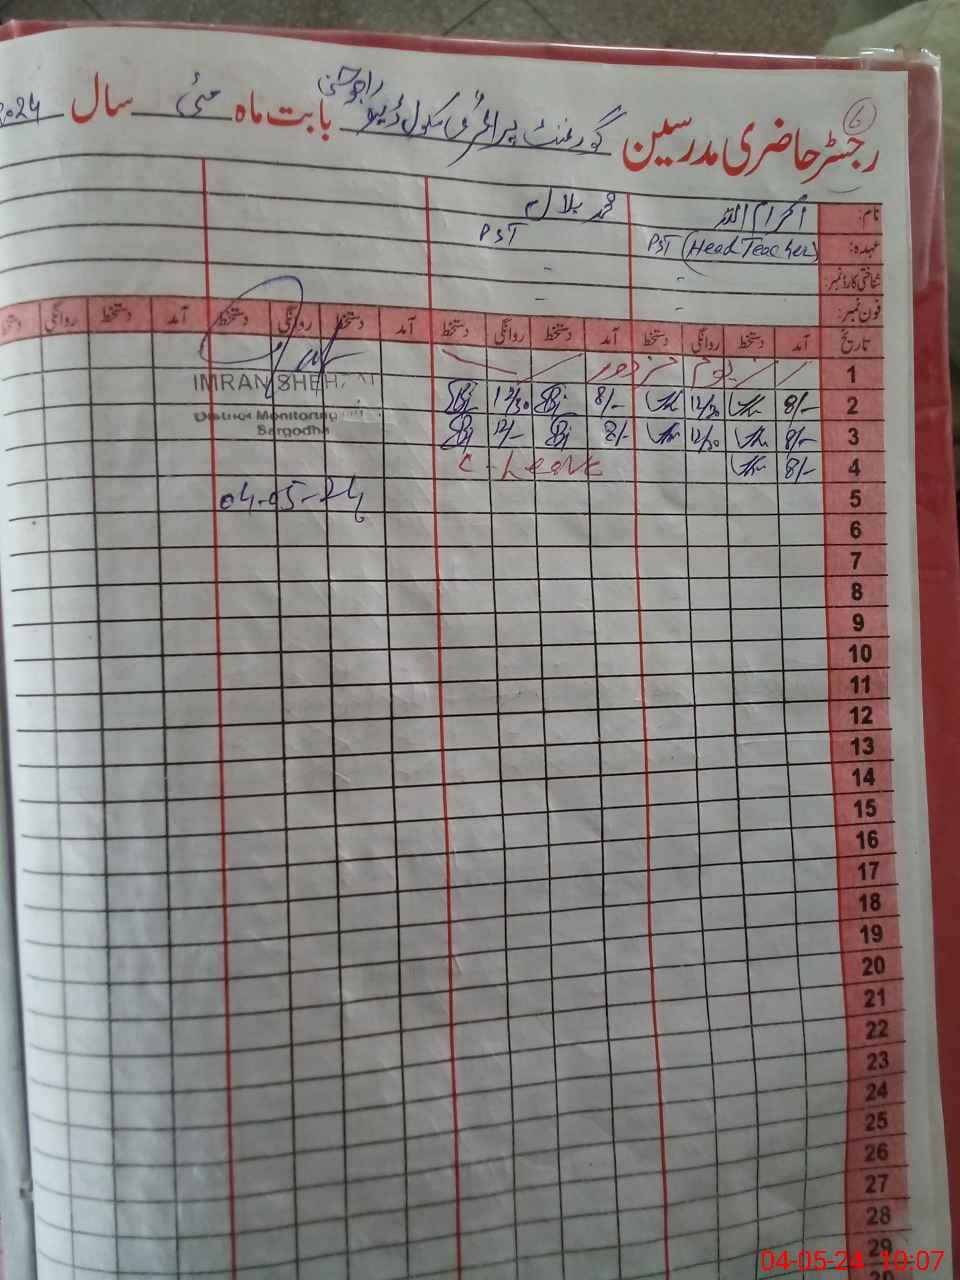 6
رجسٹر حاضری مدرسین گورنمنٹ پرائمری سکول بابت ماہ مئی سال 2024
نام: محمد بلال
عہدہ: PST (Head Teacher) PST
شناختی کارڈ نمبر: - -
فون نمبر: - -
تاریخ آمد دستخط روانگی دستخط آمد دستخط روانگی دستخط آمد دستخط روانگی دستخط آمد دستخط روانگی دستخط
1 یوم مزدور
2 8/- 12/30 8/- 12/30
3 8/- 12/30 8/- 12/-
4 8/- C-Leave
5
6
7
8
9
10
11
12
13
14
15
16
17
18
19
20
21
22
23
24
25
26
27
28
29
IMRAN SHEH
District Monitoring
Sargodha
04-05-24
04-05-24 10:07